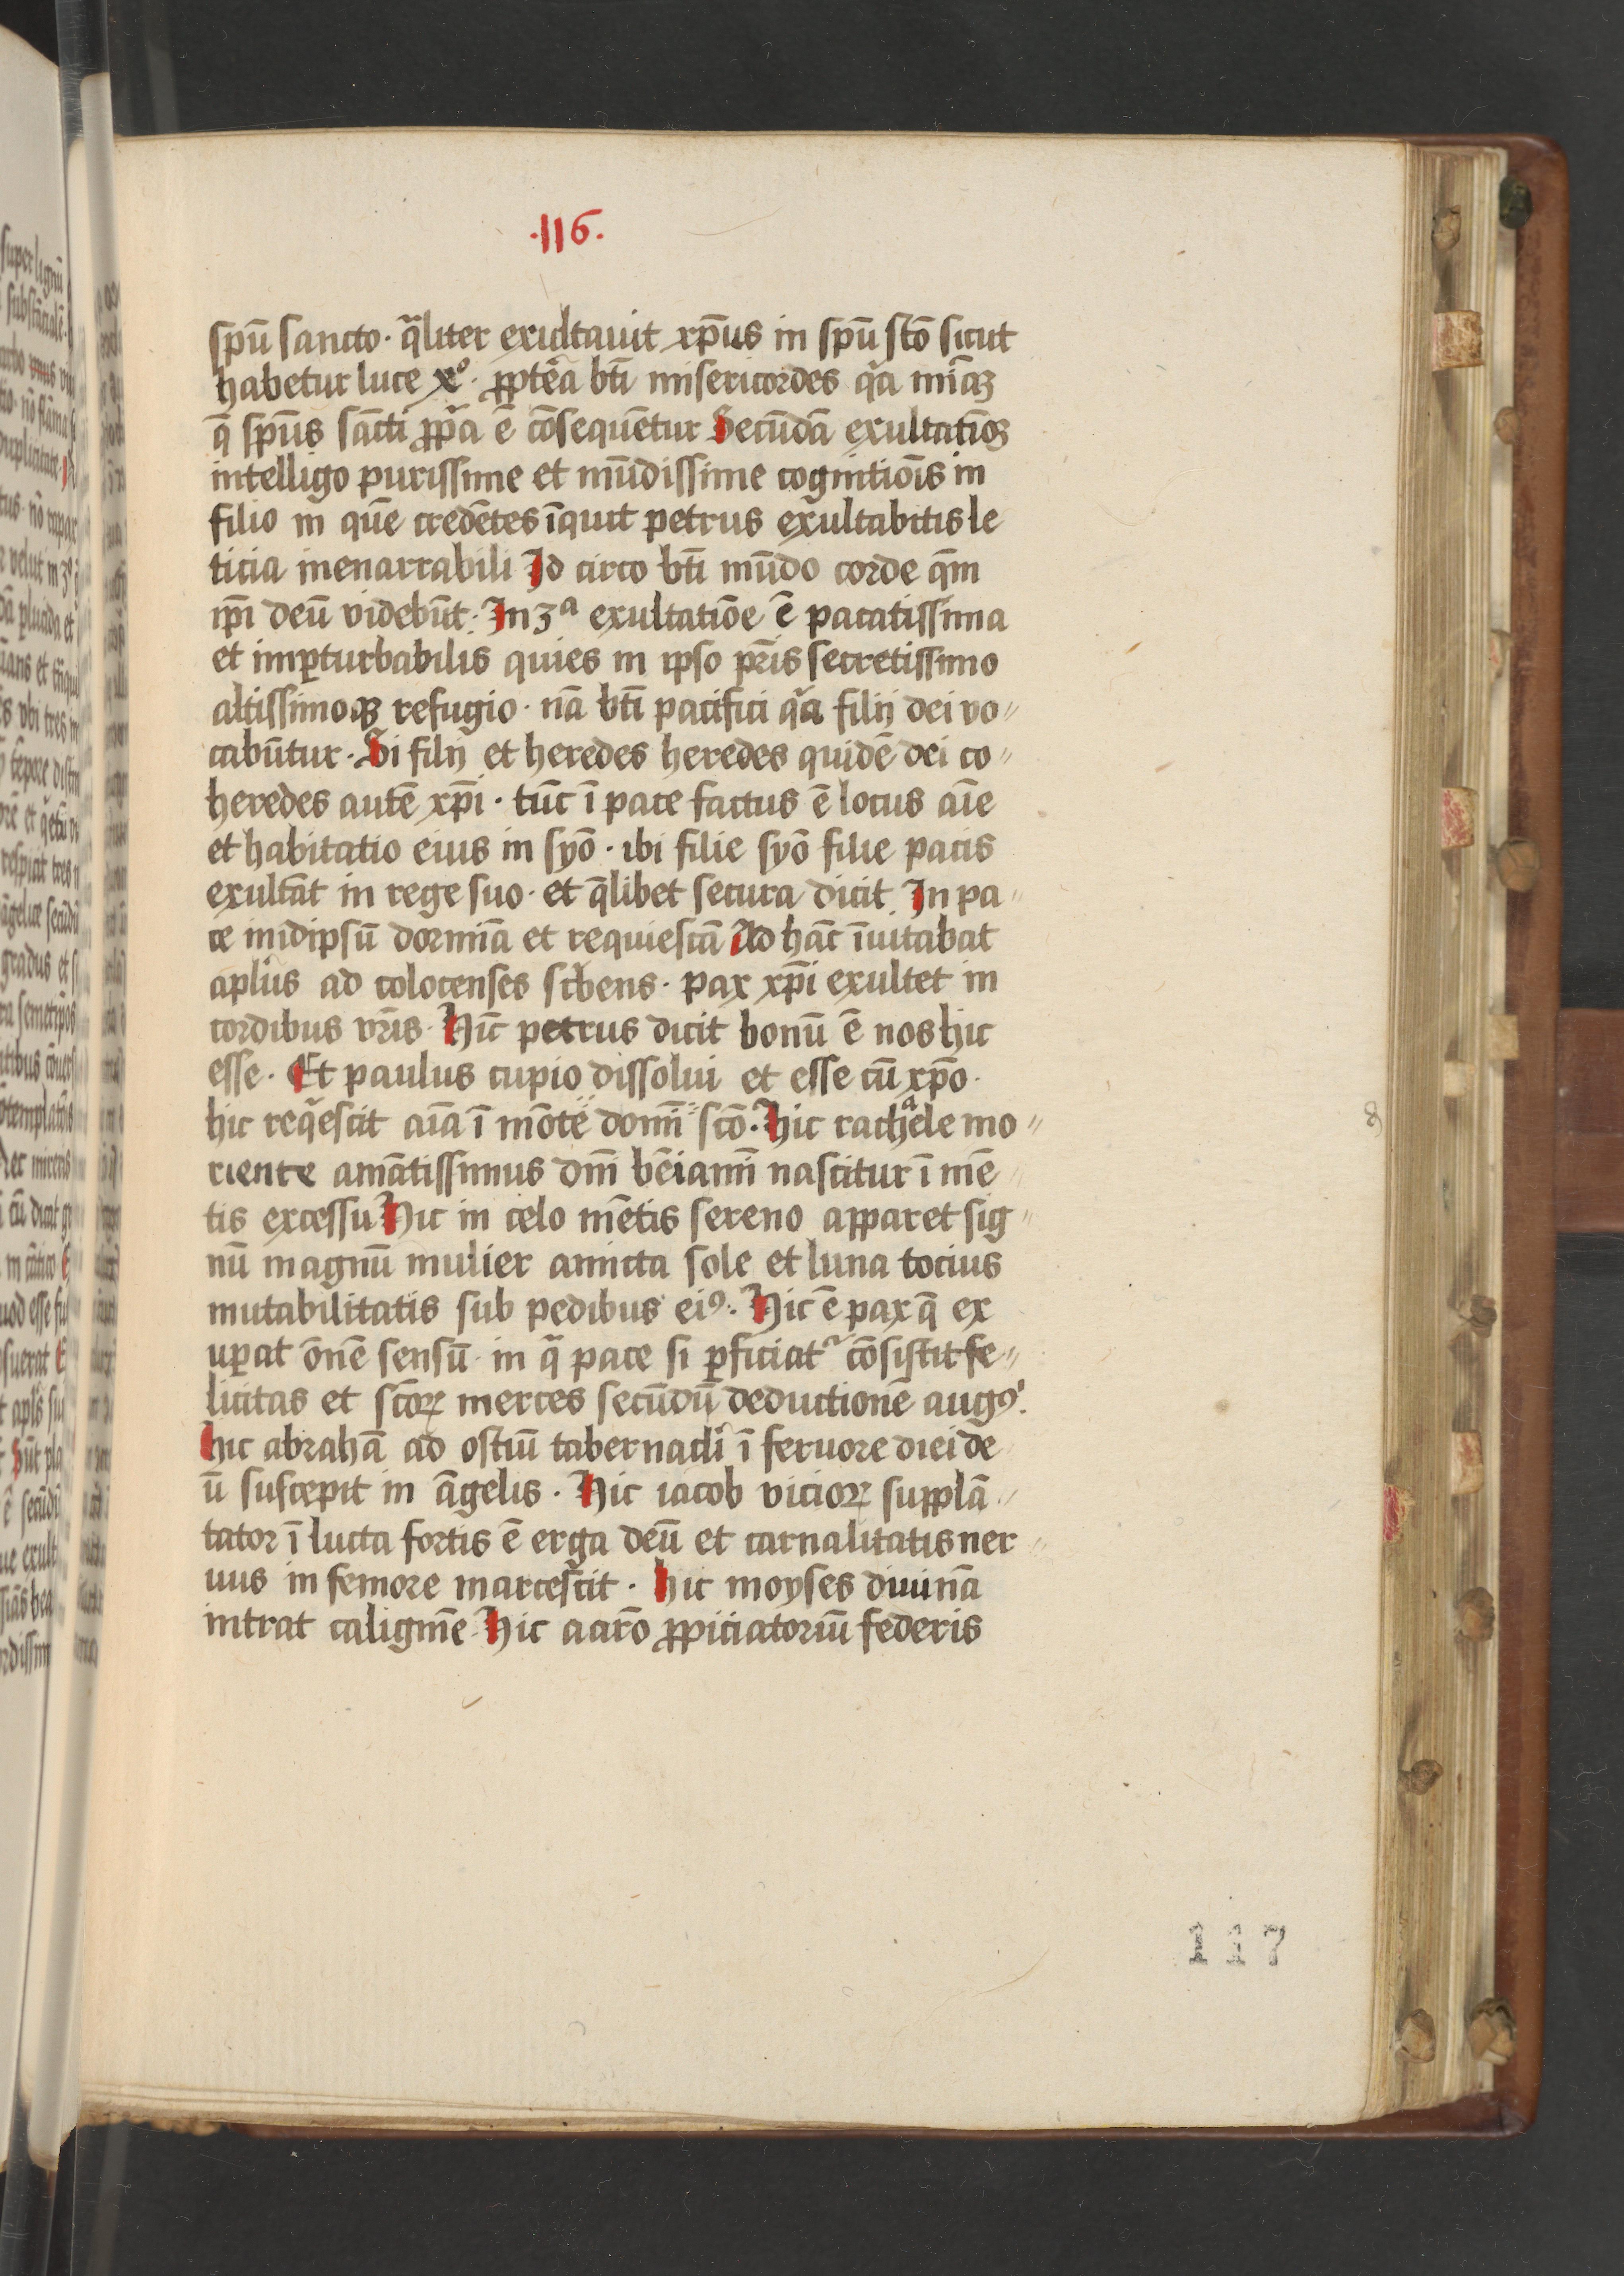 .116.
spū sancto · qͣliter exultauit xp̄us in spū sc̄o sicut
habetur luce xº · ꝓpteā bt̄i misericordes qͣa mīaꝫ
q̄ sp̄us sāncti ꝓpͥa ē cōsequētur Secūdā exultatiōꝫ
intelligo purissime et mūdissime cognitiōis in
filio in quē credētes īquit petrus exultabitis le
ticia inenarrabili Id circo bt̄i mūdo corde qm̄
ip̄i deū videbūt · In 3ª exultatiōe ē pacatissima
et imꝑturbabilis quies in ipso pr̄is secretissimo
altissimoqꝫ refugio · nā bt̄i pacifici qͣa filij dei vo〃
cabūtur · Si filij et heredes heredes quidē dei co〃
heredes autē xp̄i · tūc ī pace factus ē locus aīe
et habitatio eius in syō · ibi filie syō filie pacis
exultāt in rege suo · et q̄libet secura dicit In pa〃
ce inidipsū dormiā et requiescā Ad hāc īuitabat
apl̄us ad colocenses scͥbens · pax xp̄i exultet in
cordibus vr̄is · Hīc petrus dicit bonū ē nos hic
esse · Et paulus cupio dissolui et esse cū xp̄o ·
hic reqͥescit aīa ī mōte domī scō · Hic rachªele mo〃
riente amātissimus dn̄i bēiamī nascitur ī mē
tis excessu Hic in celo mētis sereno apparet sig〃
nū magnū mulier amicta sole et luna tocius
mutabilitatis sub pedibus eiꝰ · Hic ē pax q̄ ex
uꝑat ōnē sensū · in qͣ pace si ꝑficiatᷣ cōsistit fe〃
licitas et sc̄oꝝ merces secūdū deductionē augꝰ ·
hic abrahā ad ostiū tabernacl̄i ī feruore diei de
ū suscepit in āgelis · Hic iacob vicioꝝ supplā〃
tator ī lucta fortis ē erga deū et carnalitatis ner〃
uus in femore marcescit · hic moyses diuinā
intrat caliginē · Hic aarō ꝓpiciatoriū federis
117